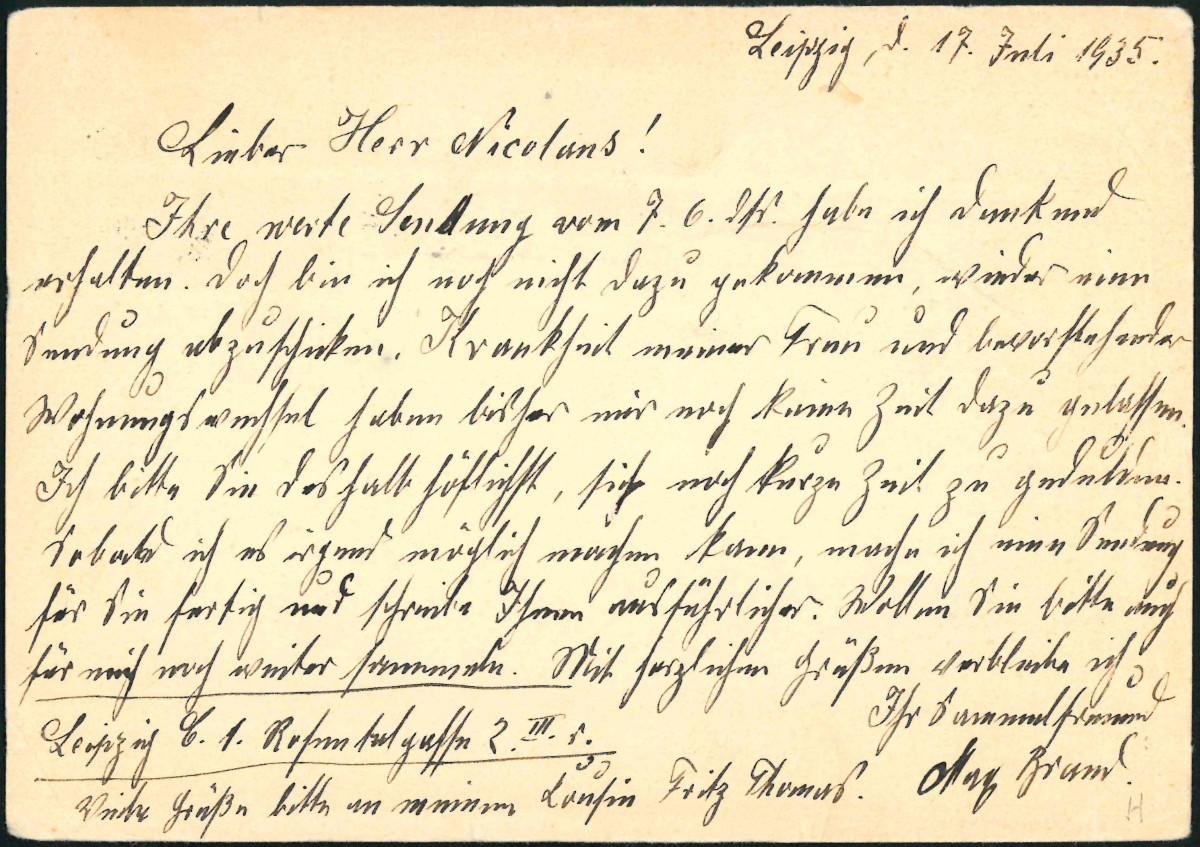 Leipzig, d. 17. Juli 1935.
Lieber Herr Nicolaus!
Ihre werte Sendung vom 7. 6. ds. habe ich dankend
erhalten. Doch bin ich noch nicht dazu gekommen, wieder eine
Sendung abzuschicken. Krankheit meiner Frau und bevorstehender
Wohnungswechsel haben bisher mir noch keine Zeit dazu gelassen.
Ich bitte Sie deshalb höflichst, sich noch kurze Zeit zu gedulden.
Sobald ich es irgend möglich machen kann, mache ich eine Sendung
für Sie fertig und schreibe Ihnen ausführlicher. Wollen Sie bitte auch
für mich noch weiter sammeln. Mit herzlichen Grüßen verbleibe ich
Ihr Sammelfreund
Leipzig C. 1. Rosentalgasse 2. III. r.
Max Brand.
Viele Grüße bitte an meinen Cousin Fritz Thomas.
H